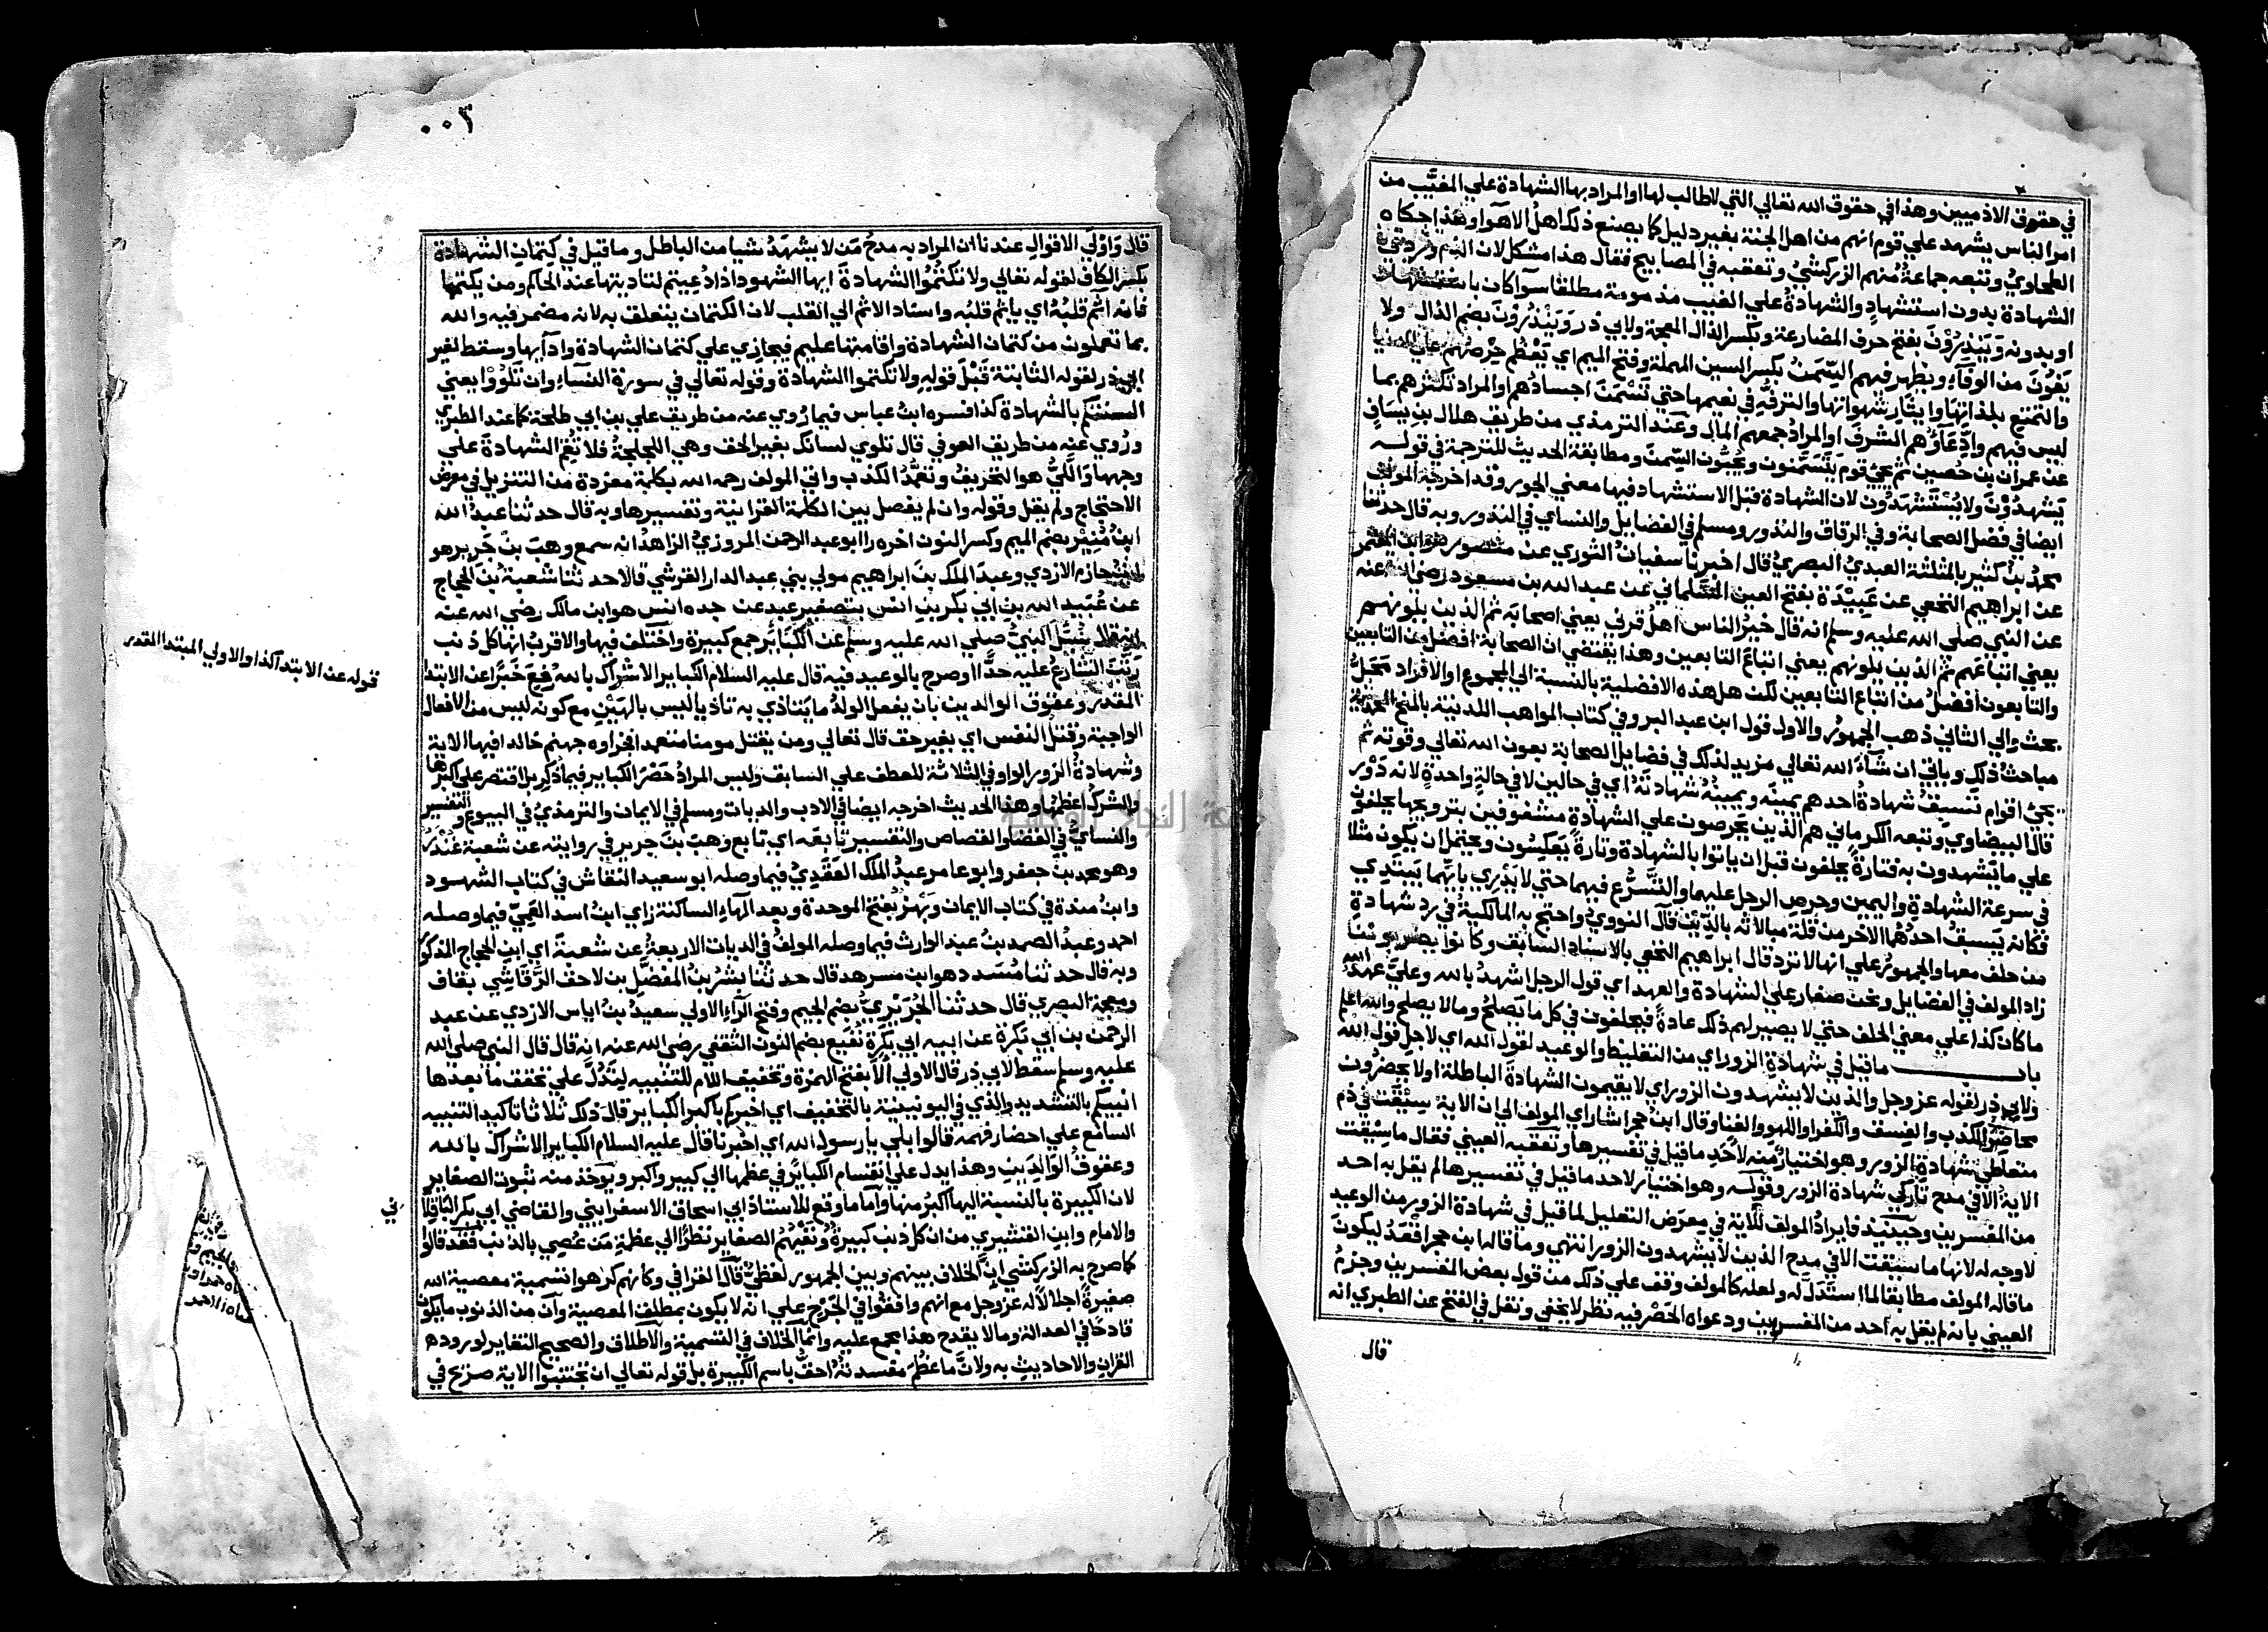 في حقوق الادميين وهذا في حقوق الله تعالي التي لا طالب لها او المراد بها الشهادة علي المغيَّب من
امر الناس يشهد علي قوم انهم من اهل الجنة بغير دليل كما يصنع ذلك اهل الاهوآ وهذا حكاه
الطحاويُّ وتبعه جماعةٌ منهم الزركشيُّ وتعقبه في المصابيح فقال هذا مشكل لان الذم ورد في
الشهادة بدون استشهادٍ والشهادةُ علي الغيب مذمومة مطلقا سوآ كان باستشهاد
او بدونه وَيَنْذِرُوْنَ بفتح حرف المضارعة وبكسر الذال المعجمة ولابي ذر وَيَنْذُرُوْنَ بضم الذال ولا
يَفُوْنَ من الوفآءِ ويظهر فيهم السِّمَنُ بكسر السين المهملة وفتح الميم اي يَعْظُم حِرْصُهُم علي الدنيا
والتمتع بلذاتِهَا وايثارِ شهواتها والترفُّهِ في نعيمها حتي تَسْمَنَ اجسادُهم او المراد تكثرهم بما
ليس فيهم وادِّعآؤُهم الشرفَ او المرادُ جمعهم المال وعند الترمذي من طريق هلال بن يِسَافٍ
عن عمران بن حُصين ثم يجيُ قوم يَتَسَمَّنون ويُحِبُّون السِّمنَ ومطابقة الحديث للترجمة في قوله
يَشْهدُوْنَ ولا يُسْتَشْهَدُوْن لان الشهادة قبل الاستشهاد فيها معني الجور وقد اخرجه المولف
ايضا في فضل الصحابة وفي الرقاق والنذور ومسلم في الفضايل والنساي في النذور وبه قال حدثنا
محمدُ بنُ كثير بالمثلثة العبديُّ البصريُّ قال اخبرنا سفيانُ الثوري عن منصور هو ابن المعتمر
عن ابراهيم النخعي عن عَبِيْدَةَ بفتح العين السَّلماني عن عبد الله بن مسعود رضي الله عنه
عن النبي صلي الله عليه وسلم انه قال خيرُ الناس اهلُ قرني يعني اصحابه ثم الذين يلونهم
يعني اتباعهم ثم الذين يلونهم يعني اتباعَ التابعين وهذا يقتضي ان الصحابة افضل من التابعين
والتابعون افضلُ من اتباع التابعين لكن هل هذه الافضلية بالنسبة الي المجموع او الافراد مَحَلُّ
بحث والي الثاني ذهب الجمهورُ والاول قول ابن عبد البر وفي كتاب المواهب اللدنية بالمنح المحمدية
مباحثُ ذلك وياتي ان شآءَ الله تعالي مزيد لذلك في فضايل الصحابة بعون الله تعالي وقوته ثم
يجيُ اقوام تَسبِقُ شهادةُ احدهم يمينَه ويمينُهُ شهادتَهُ اي في حالين لا في حالةٍ واحدةٍ لانه دَوْر
قال البيضاوي وتبعه الكرماني هم الذين يَحرصون علي الشهادةِ مشغوفين بترويجها يحلفون
علي ما يَشهدون به فتارةً يحلفون قبل ان ياتوا بالشهادة وتارةً يَعكِسُون ويحتمل ان يكون مثلا
في سرعة الشهادةِ واليمين وحرصِ الرجل عليهما والتَّسرُّع فيهما حتي لا يَدْري بايِّهما يَبتدِي
فكانه يَسبقُ احدُهُما الاخر من قلة مبالاته بالدِّيْن قال النوويُّ واحتج به المالكيةُ في رد شهادةِ
من حلف معها والجمهورُ علي انها لا تردُ قال ابراهيم النخعي بالاسناد السابق وكانوا يضربوننا
زاد المولف في الفضايل ونحن صغار علي الشهادة والعهد اي قول الرجل اشهدُ بالله وعليَّ عهدُ الله
ما كان كذا علي معني الحلف حتي لا يصير لهم ذلك عادةً فيحلفون في كل ما يَصلحُ وما لا يصلح والله اعلم
باب ما قيل في شهادةِ الزور اي من التغليظ والوعيد لقول الله اي لاجل قول الله
ولابي ذر لقوله عز وجل والذين لا يشهدون الزور اي لا يقيمون الشهادةَ الباطلة او لا يحضُرُون
محاضرَ الكذب والفسق والكفر واللهو والغنا وقال ابنُ حجر اشار اي المولف الي ان الاية سِيْقَت في ذم
متعاطي شهادة الزور وهو اختيارٌ منه لاَحَدِ ما قيل في تفسيرها وتعقبه العيني فقال ما سِيْقَت
الايةُ الا في مدح تاركي شهادة الزور وقوله وهو اختيار لاحد ما قيل في تفسيرها لم يقل به احد
من المفسرين وحينئذ فايرادُ المولف للاية في مِعرَض التعليل لما قيل في شهادة الزور من الوعيد
لا وجه له لانها ما سيقت الا في مدح الذين لا يشهدون الزور انتهي وما قاله ابن حجر اقعدُ ليكونَ
ما قاله المولف مطابقا لما استُدلَّ له ولعله كالمولف وقف علي ذلك من قول بعض المفسرين وجزمُ
العيني بانه لم يقل به احد من المفسرين ودعواه الحَصْر فيه نظر لا يخفي ونقل في الفتح عن الطبري انه
قال
٣٠٠
قال وَاَوْلَي الاقوال عندنا ان المراد به مدحُ مَن لا يشهدُ شيا من الباطل وما قيل في كِتمانِ الشهادة
بكسر الكاف لقوله تعالي ولا تكتُموا الشهادةَ ايها الشهود اذا دُعِيتم لتاديتها عند الحاكم ومن يكتمها
فانه آثِم قلبُهُ اي ياثم قلبُه واسناد الاثم الي القلب لان الكتمان يتعلق به لانه مضمر فيه والله
بما تعملون من كتمان الشهادة واقامتها عليم فيجازي علي كتمان الشهادة وادآيها وسقط لغير
ابي ذر لقوله الثابتة قَبْلَ قولهِ ولا تكتموا الشهادة وقوله تعالي في سورة النسآءِ وان تَلْوُوْا يعني
السنتكم بالشهادة كذا فسره ابنُ عباس فيما رُوي عنه من طريق علي بن ابي طلحة كما عند الطبري
ورُوي عنه من طريق العوفي قال تلوي لسانك بغير الحق وهي اللجلجةُ فلا تُقِم الشهادةَ علي
وجهها وَاللَّيُّ هو التحريفُ وتعمُّدُ الكذب واتي المولف رحمه الله بكلمة مفردة من التنزيل في معرض
الاحتجاج ولم يقل وقوله وان لم يفصل بين الكلمة القرانية وتفسيرها وبه قال حدثنا عبدُ الله
ابنُ مُنِيْرٍ بضم الميم وكسر النون اخره را ابو عبد الرحمن المروزيُّ الزاهد انه سمع وهبَ بنَ جَرِير هو
ابن حازم الازدي وعبدَ الملك بنَ ابراهيم مولي بني عبد الدار القرشي قالا حدثنا شعبةُ بنُ الحجاج
عن عُبَيد الله بنِ ابي بكر بنِ انسٍ بتصغير عبد عن جده انس هو ابن مالك رضي الله عنه
انه قال سُئِلَ النبيُّ صلي الله عليه وسلم عن الكَبَايِر جمع كبيرة واختُلف فيها والاقربُ انها كل ذنب
رَتَّبَ الشارعُ عليه حدًّا او صرح بالوعيد فيه قال عليه السلام الكباير الاشراك بالله رُفِعَ خَبَرًا عن الابتدا
المقدر وعقوق الوالدين بان يفعل الولدُ ما يَتاذي به تاذيا ليس بالهَيْنِ مع كونه ليس من الافعال
الواجبة وقتلُ النفس اي بغير حق قال تعالي ومن يقتل مومنا متعمدا فجزاوه جهنم خالدا فيها الاية
وشهادةُ الزور الواو في الثلاثة للعطف علي السابق وليس المرادُ حَصْرَ الكباير فيما ذُكِر بل اقتصر علي اكبرها
والشركُ اعظمُها وهذا الحديث اخرجه ايضا في الادب والديات ومسلم في الايمان والترمذيُّ في البيوع والتفسير
والنسايُّ في القضا والقصاص والتفسير تابعه اي تابع وهبَ بنَ جرير في روايته عن شعبة غُنْدَرٌ
وهو محمد بنُ جعفر وابو عامر عبدُ الملك العَقَدِيُّ فيما وصله ابو سعيد النقاش في كتاب الشهود
وابنُ مندة في كتاب الايمان وبَهْزٌ بفتح الموحدة وبعد الهآءِ الساكنة زاي ابنُ اسد العَمِّيُّ فيما وصله
احمد وعبدُ الصمد بنُ عبد الوارث فيما وصله المولفُ في الديات الاربعةُ عن شعبة اي ابنِ الحجاج المذكور
وبه قال حدثنا مُسَدد هو ابن مسرهد قال حدثنا بِشْرُ بنُ المفضل بن لاحق الرَّقاشي بقاف
ومعجمة البصري قال حدثنا الجُرَيْرِيُّ بضم الجيم وفتح الرآءِ الاولي سعيدُ بنُ اياس الازدي عن عبد
الرحمن بن ابي بَكرة عن ابيه ابي بَكرَة نُفَيع بضم النون الثقفي رضي الله عنه انه قال قال النبي صلي الله
عليه وسلم سقط لابي ذر قال الاولي اَلاَ بفتح الهمزة وتخفيف اللام للتنبيه ليَدُلَّ علي تحقق ما بعدها
انبيكم بالتشديد والذي في اليونينية بالتخفيف اي اخبركم باكبر الكباير قال ذلك ثلاثا تاكيدا لتنبيه
السامع علي احضار فهمه قالوا بلي يا رسول الله اي اخبرنا قال عليه السلام الكباير الاشراك بالله
وعقوقُ الوالِدَينِ وهذا يدل علي انقسام الكباير في عظمها الي كبير واكبر ويوخذ منه ثبوت الصغاير
لان الكبيرة بالنسبة اليها اكبرُ منها واما ما وقع للاستاذ ابي اسحاق الاسفرايني والقاضي ابي بكر الباقلاني
والامام وابنِ القشيري من ان كل ذنب كبيرةٌ ونَفْيُهُم الصغاير نظرًا الي عظمةِ مَن عُصِي بالذنب فقد قالوا
كما صرح به الزركشي اِن الخلاف بينهم وبين الجمهور لفظيٌّ قال القرافي وكانهم كرهوا تسمية معصية الله
صغيرةً اجلالاً له عز وجل مع انهم وافقوا في الجَرْح علي انه لا يكون بمطلق المعصية وان من الذنوب ما يكون
قادحًا في العدالة وما لا يقدح هذا مجمع عليه وانما الخلاف في التسمية والاطلاق والصحيح التغاير لورود
القران والاحاديثِ به ولان ما عظُم مفسدتُهُ احقُّ باسم الكبيرة بل قوله تعالي ان تجتنبوا الاية صريح في
قوله عن الابتدآ كذا والاولي المبتدا المقدر